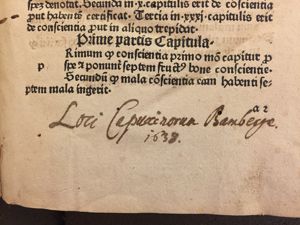 pres denotat. Secunda in .x. capitulis erit de cõscientia
put habente certificat. Tercia in .xxxj. capitulis erit
de conscientia prout in aliquo trepidat.
Prime partis Capitula.
Rimum ꝙ conscientia primo mõ capitur
septem bone conscientie.
Secundũ ꝙ mala cõscientia eam habenti se
ptem mala ingerit.
a 2
Loci Capucinorum Bambergæ.
1638.